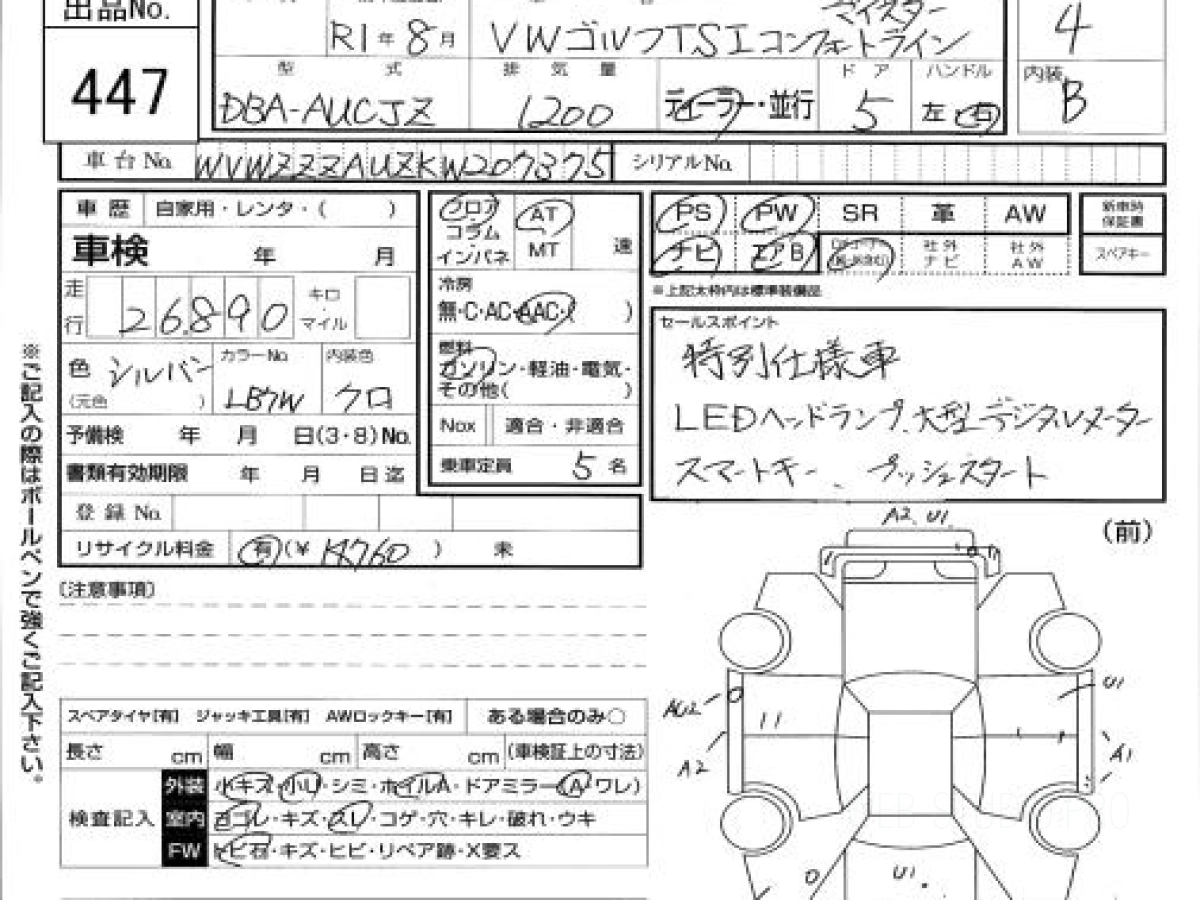 出品No.
447
R1年 8月
VWゴルフTSIコンフォートライン
マイスター
4
型 式
排 気 量
ド ア
ハンドル
内装
DBA-AUCJZ
1200
ディーラー・並行
5
左・右
B
車台No.
WVWZZZAUZKW207375
シリアルNo.
車歴
自家用・レンタ・( )
車検 年 月
走行
26890
キロ・マイル
色
シルバー
(元色 )
カラーNo
LB7W
内装色
クロ
予備検 年 月 日(3・8)No.
書類有効期限 年 月 日迄
登録No.
リサイクル料金
有(¥ 14760 ) 未
フロア
コラム
インパネ
AT
MT
速
冷房
無・C・AC・AAC・( )
燃料
ガソリン・軽油・電気・
その他( )
Nox
適合・非適合
乗車定員 5 名
PS
PW
SR
革
AW
ナビ
エアB
社外ナビ
社外AW
新車時保証書
スペアキー
※上記太枠内は標準装備品
セールスポイント
特別仕様車
LEDヘッドランプ、大型デジタルメーター
スマートキー、プッシュスタート
※ご記入の際はボールペンで強くご記入下さい。
(注意事項)
スペアタイヤ[有] ジャッキ工具[有] AWロックキー[有]
ある場合のみ○
長さ cm
幅 cm
高さ cm
(車検証上の寸法)
検査記入
外装
小キズ・小U・シミ・ホイルA・ドアミラー(A・ワレ)
室内
ヨゴレ・キズ・スレ・コゲ・穴・キレ・破れ・ウキ
FW
トビ石・キズ・ヒビ・リペア跡・X要ス
A2 U1
(前)
AU2
A2
U1
A1
U1